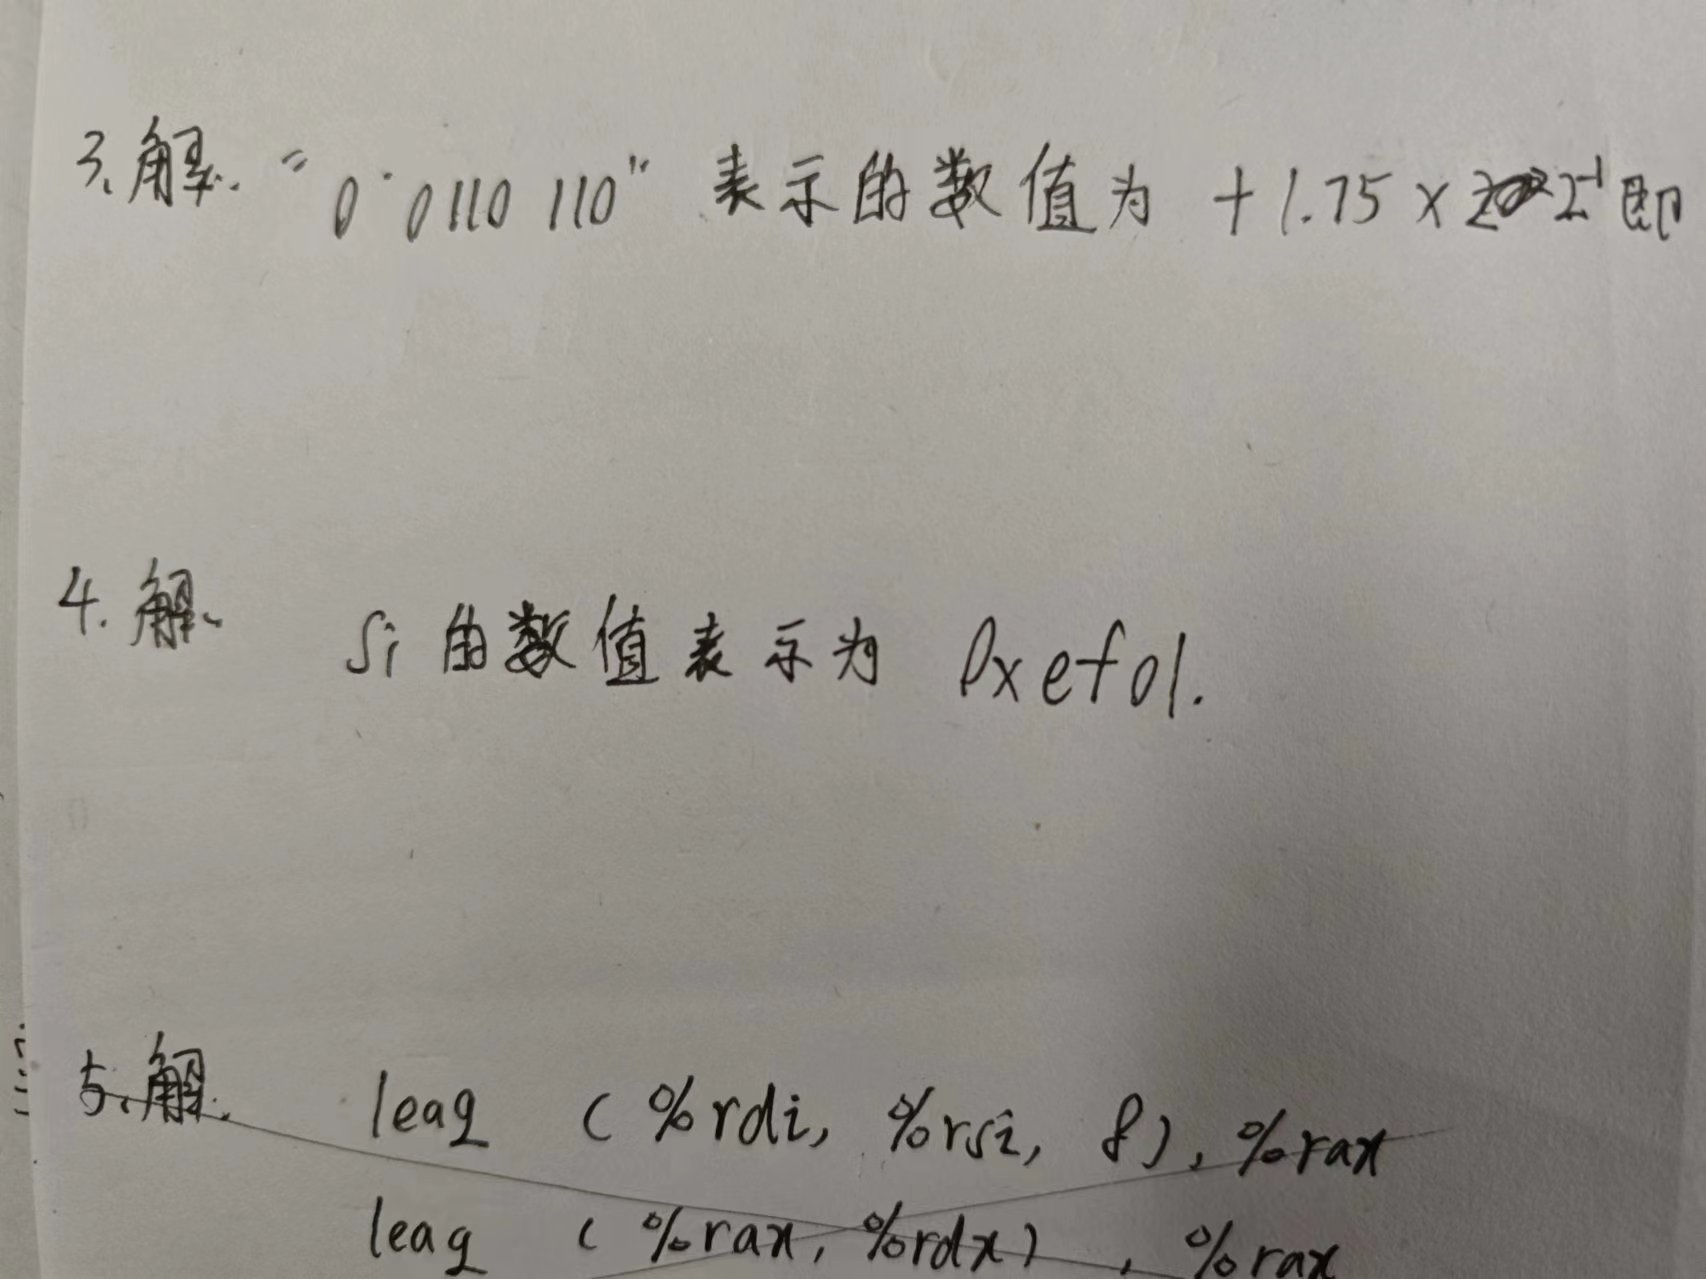 3、解. "0 0110 110" 表示的数值为 +1.75 × 2⁻¹ 即
4. 解. Si 的数值表示为 0xef01.
5、解. leaq (%rdi, %rsi, 8), %rax
leaq (%rax, %rdx), %rax